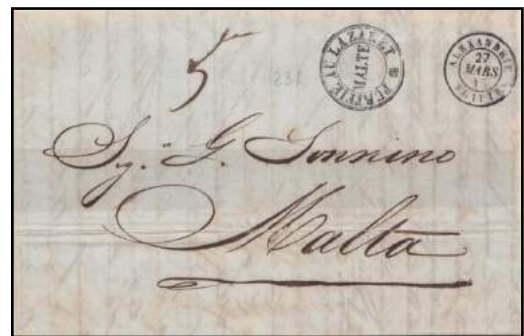 5
231
PURIFIÉ AU LAZARET
MALTE
ALEXANDRIE
27
MARS
EGYPTE
Sg. G. Sonnino
Malta